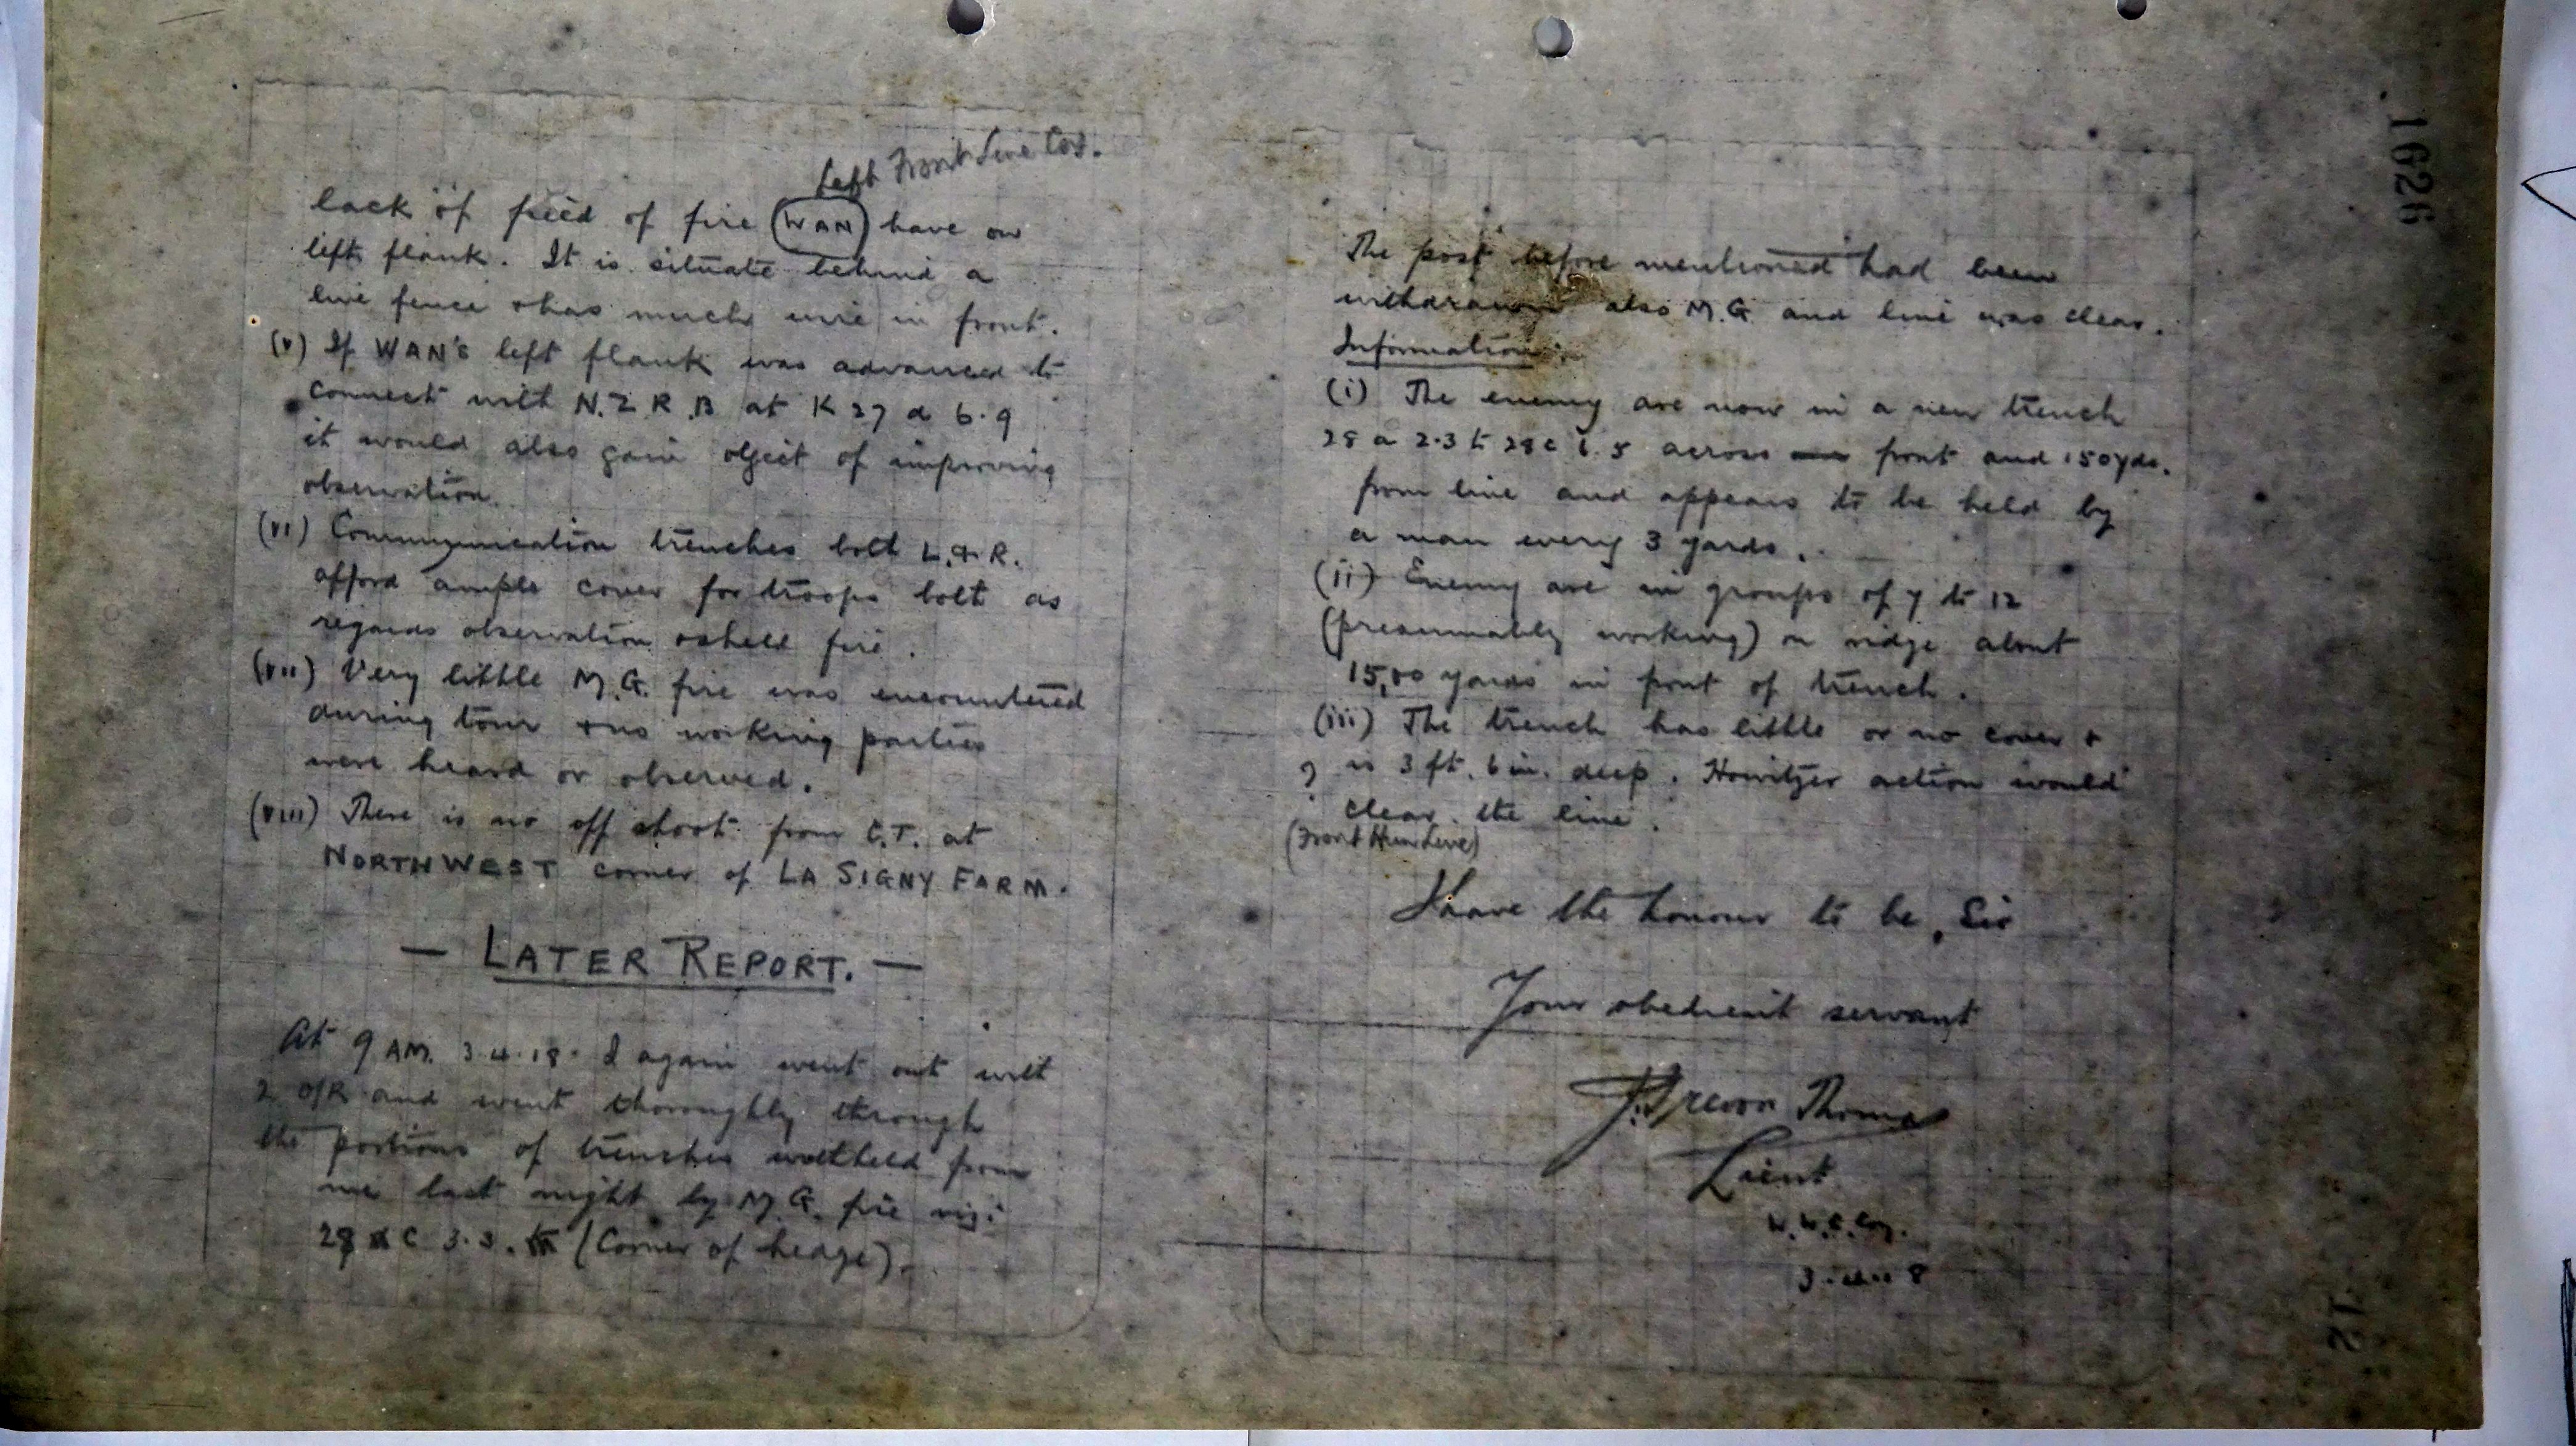 Left Front Line Coy.
lack of field of fire WAN have on
left flank. It is situate behind a
live fence & has much wire in front.
(v) If WAN'S left flank was advanced to
connect with N.Z.R.B at K 27 d 6.9
it would also gain object of improving
observation.
(vi) Communication trenches both L. & R.
afford ample cover for troops both as
regards observation & shell fire.
(vii) Very little M.G. fire was encountered
during tour & no working parties
were heard or observed.
(viii) There is no off shoot from C.T. at
NORTHWEST corner of LA SIGNY FARM.
— LATER REPORT. —
At 9 AM. 3.4.18. I again went out with
2 O/R and went thoroughly through
the portions of trenches withheld from
me last night by M.G. fire viz:
28 C 3.3. (Corner of hedge).
The post before mentioned had been
withdrawn also M.G. and line was clear.
Information:
(i) The enemy are now in a new trench
28 a 2.3 to 28 c 6.5 across front and 150 yds.
from line and appears to be held by
a man every 3 yards.
(ii) Enemy are in groups of 7 to 12
(presumably working) on ridge about
1500 yards in front of trench.
(iii) The trench has little or no cover &
? is 3 ft. 6 in. deep. Howitzer action would
clear the line.
(Front Hun Line)
I have the honour to be, Sir
Your obedient servant
Trevor Thomas
Lieut
Coy.
1626
12